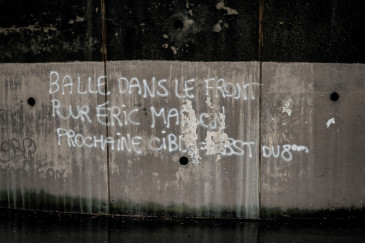 BALLE DANS LE FRONT
POUR ÉRIC
PROCHAINE BST DU 8em